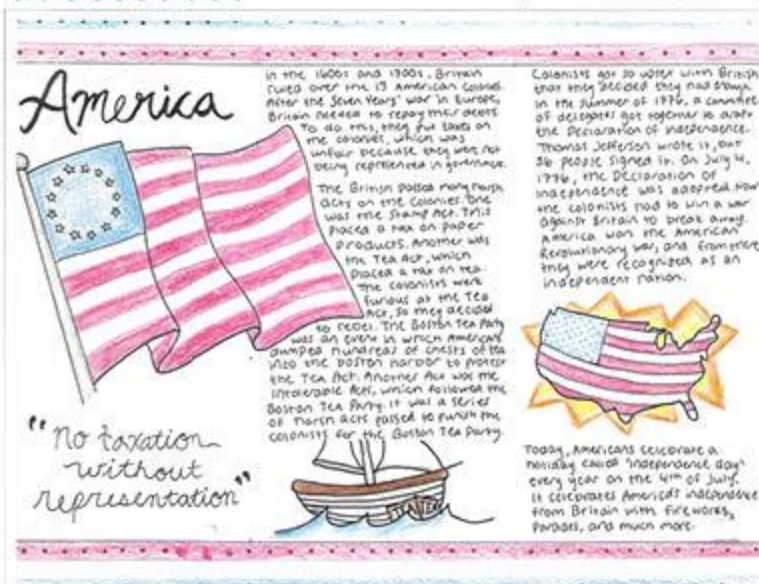 America
"No taxation
without
representation"
In the 1600s and 1700s, Britain
ruled over the 13 American colonies.
After the Seven Years' War in Europe,
Britain needed to repay their debts
To do this, they put taxes on
the colonies, which was
unfair because they were not
being represented in government.
The British passed many harsh
acts on the colonies. One
was the Stamp Act. This
placed a tax on paper
products. Another was
the Tea Act, which
placed a tax on tea.
The colonists were
furious at the Tea
Act, so they decided
to rebel. The Boston Tea Party
was an event in which Americans
dumped hundreds of chests of tea
into the Boston harbor to protest
the Tea Act. Another Act was the
Intolerable Acts, which followed the
Boston Tea Party. It was a series
of harsh acts passed to punish the
colonists for the Boston Tea Party.
TEA TEA
Colonists got so upset with British
that they decided they had enough
In the summer of 1776, a committee
of delegates got together to draft
the Declaration of Independence.
Thomas Jefferson wrote it, but
56 people signed it. On July 4,
1776, the Declaration of
Independence was adopted. Now
the colonists had to win a war
against Britain to break away.
America won the American
Revolutionary War, and from there
they were recognized as an
independent nation.
Today, Americans celebrate a
holiday called "Independence day"
every year on the 4th of July.
It celebrates America's independence
from Britain with fireworks,
parades, and much more.